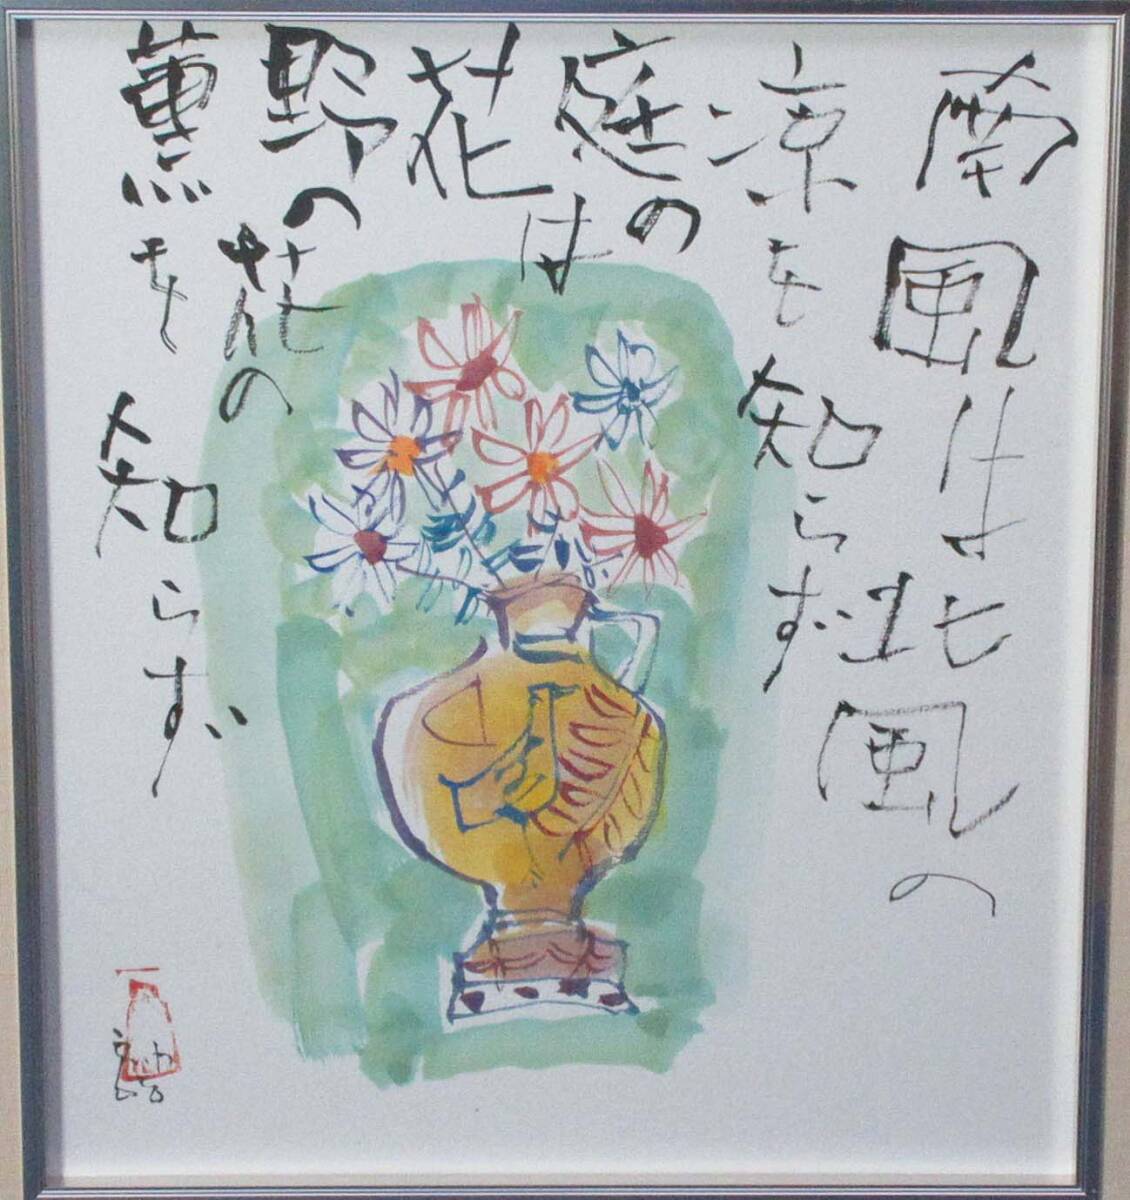 南風は北風の
涼を知らず
庭の
花は
野の花の
薫を知らず